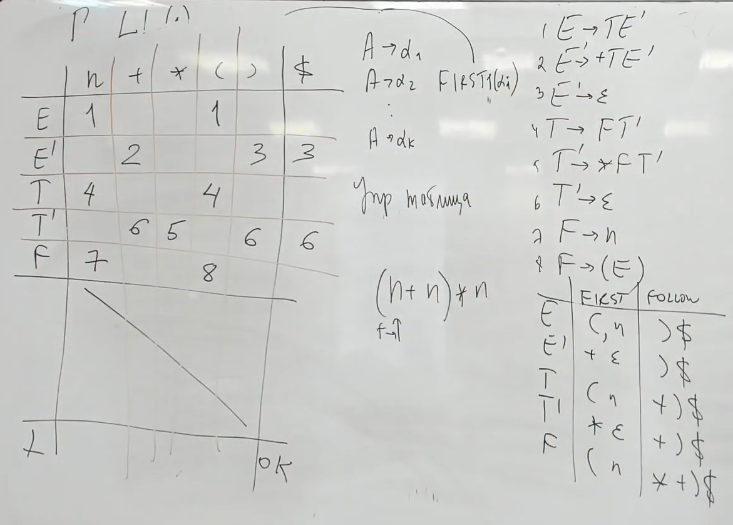 Г LL(1)
n + * ( ) $
E 1 1
E' 2 3 3
T 4 4
T' 6 5 6 6
F 7 8
⊥ OK
A→α₁
A→α₂ FIRST1(αi)
⋮
A→αk
Упр таблица
(n+n)*n
1 E→TE'
2 E'→+TE'
3 E'→ε
4 T→FT'
5 T'→*FT'
6 T'→ε
7 F→n
8 F→(E)
FIRST FOLLOW
E (, n )$
E' + ε )$
T ( n +)$
T' * ε +)$
F ( n *+)$